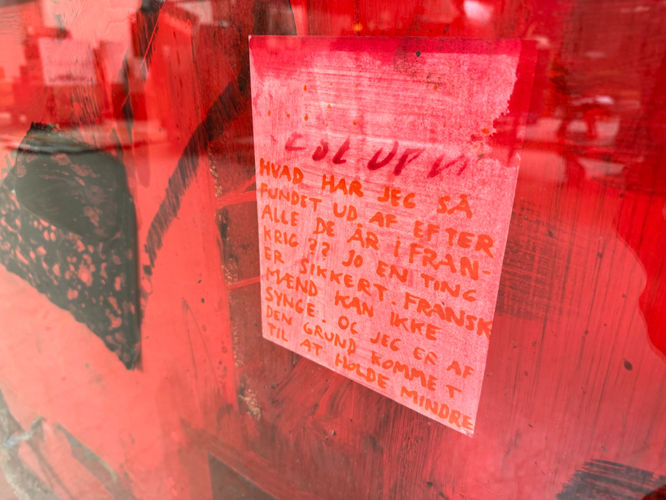 HVAD HAR JEG SÅ
FUNDET UD AF EFTER
ALLE DE ÅR I FRAN-
KRIG?? JO EN TING
ER SIKKERT. FRANSK
MÆND KAN IKKE
SYNGE. OG JEG ER AF
DEN GRUND KOMMET
TIL AT HOLDE MINDRE